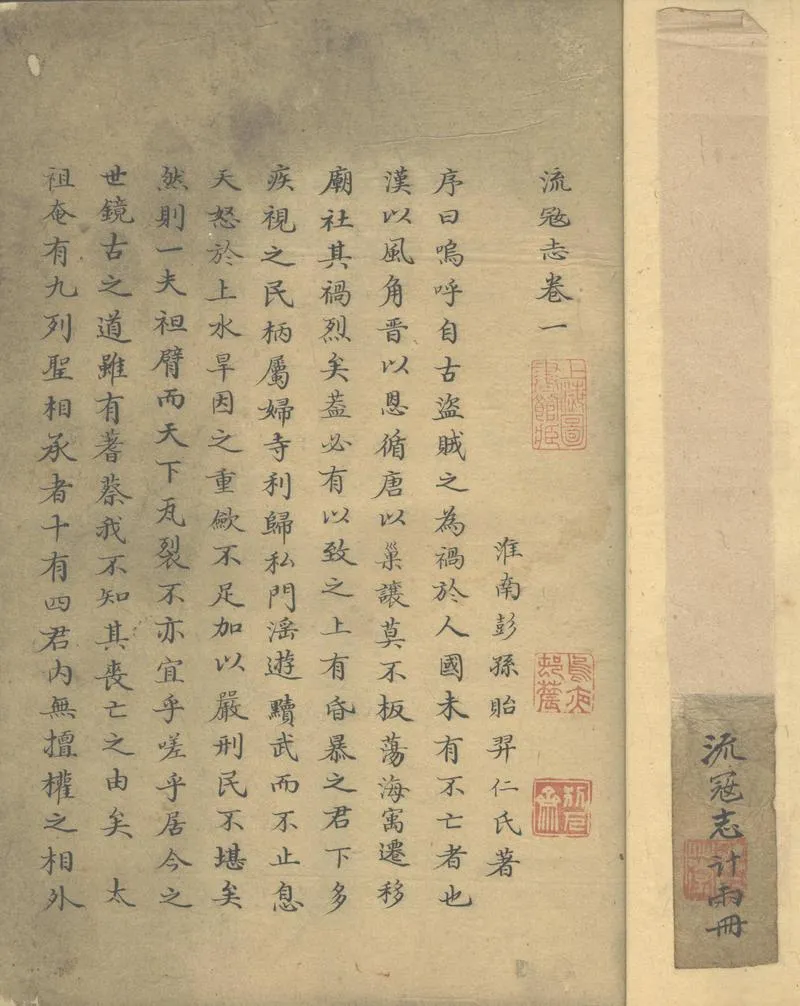 流冦志計兩冊
流冦志卷一
上海圖書館藏
淮南彭孫貽羿仁氏著
序曰嗚呼自古盜賊之為禍於人國未有不亡者也
漢以風角晋以恩循唐以巢讓莫不板蕩海寓遷移
廟社其禍烈矣葢必有以致之上有昏暴之君下多
疾視之民柄屬婦寺利歸私門淫遊黷武而不止息
天怒於上水旱因之重歛不足加以嚴刑民不堪矣
然則一夫袒臂而天下瓦裂不亦宜乎嗟乎居今之
世鏡古之道雖有蓍蔡我不知其喪亡之由矣太
祖奄有九列聖相承者十有四君内無擅權之相外